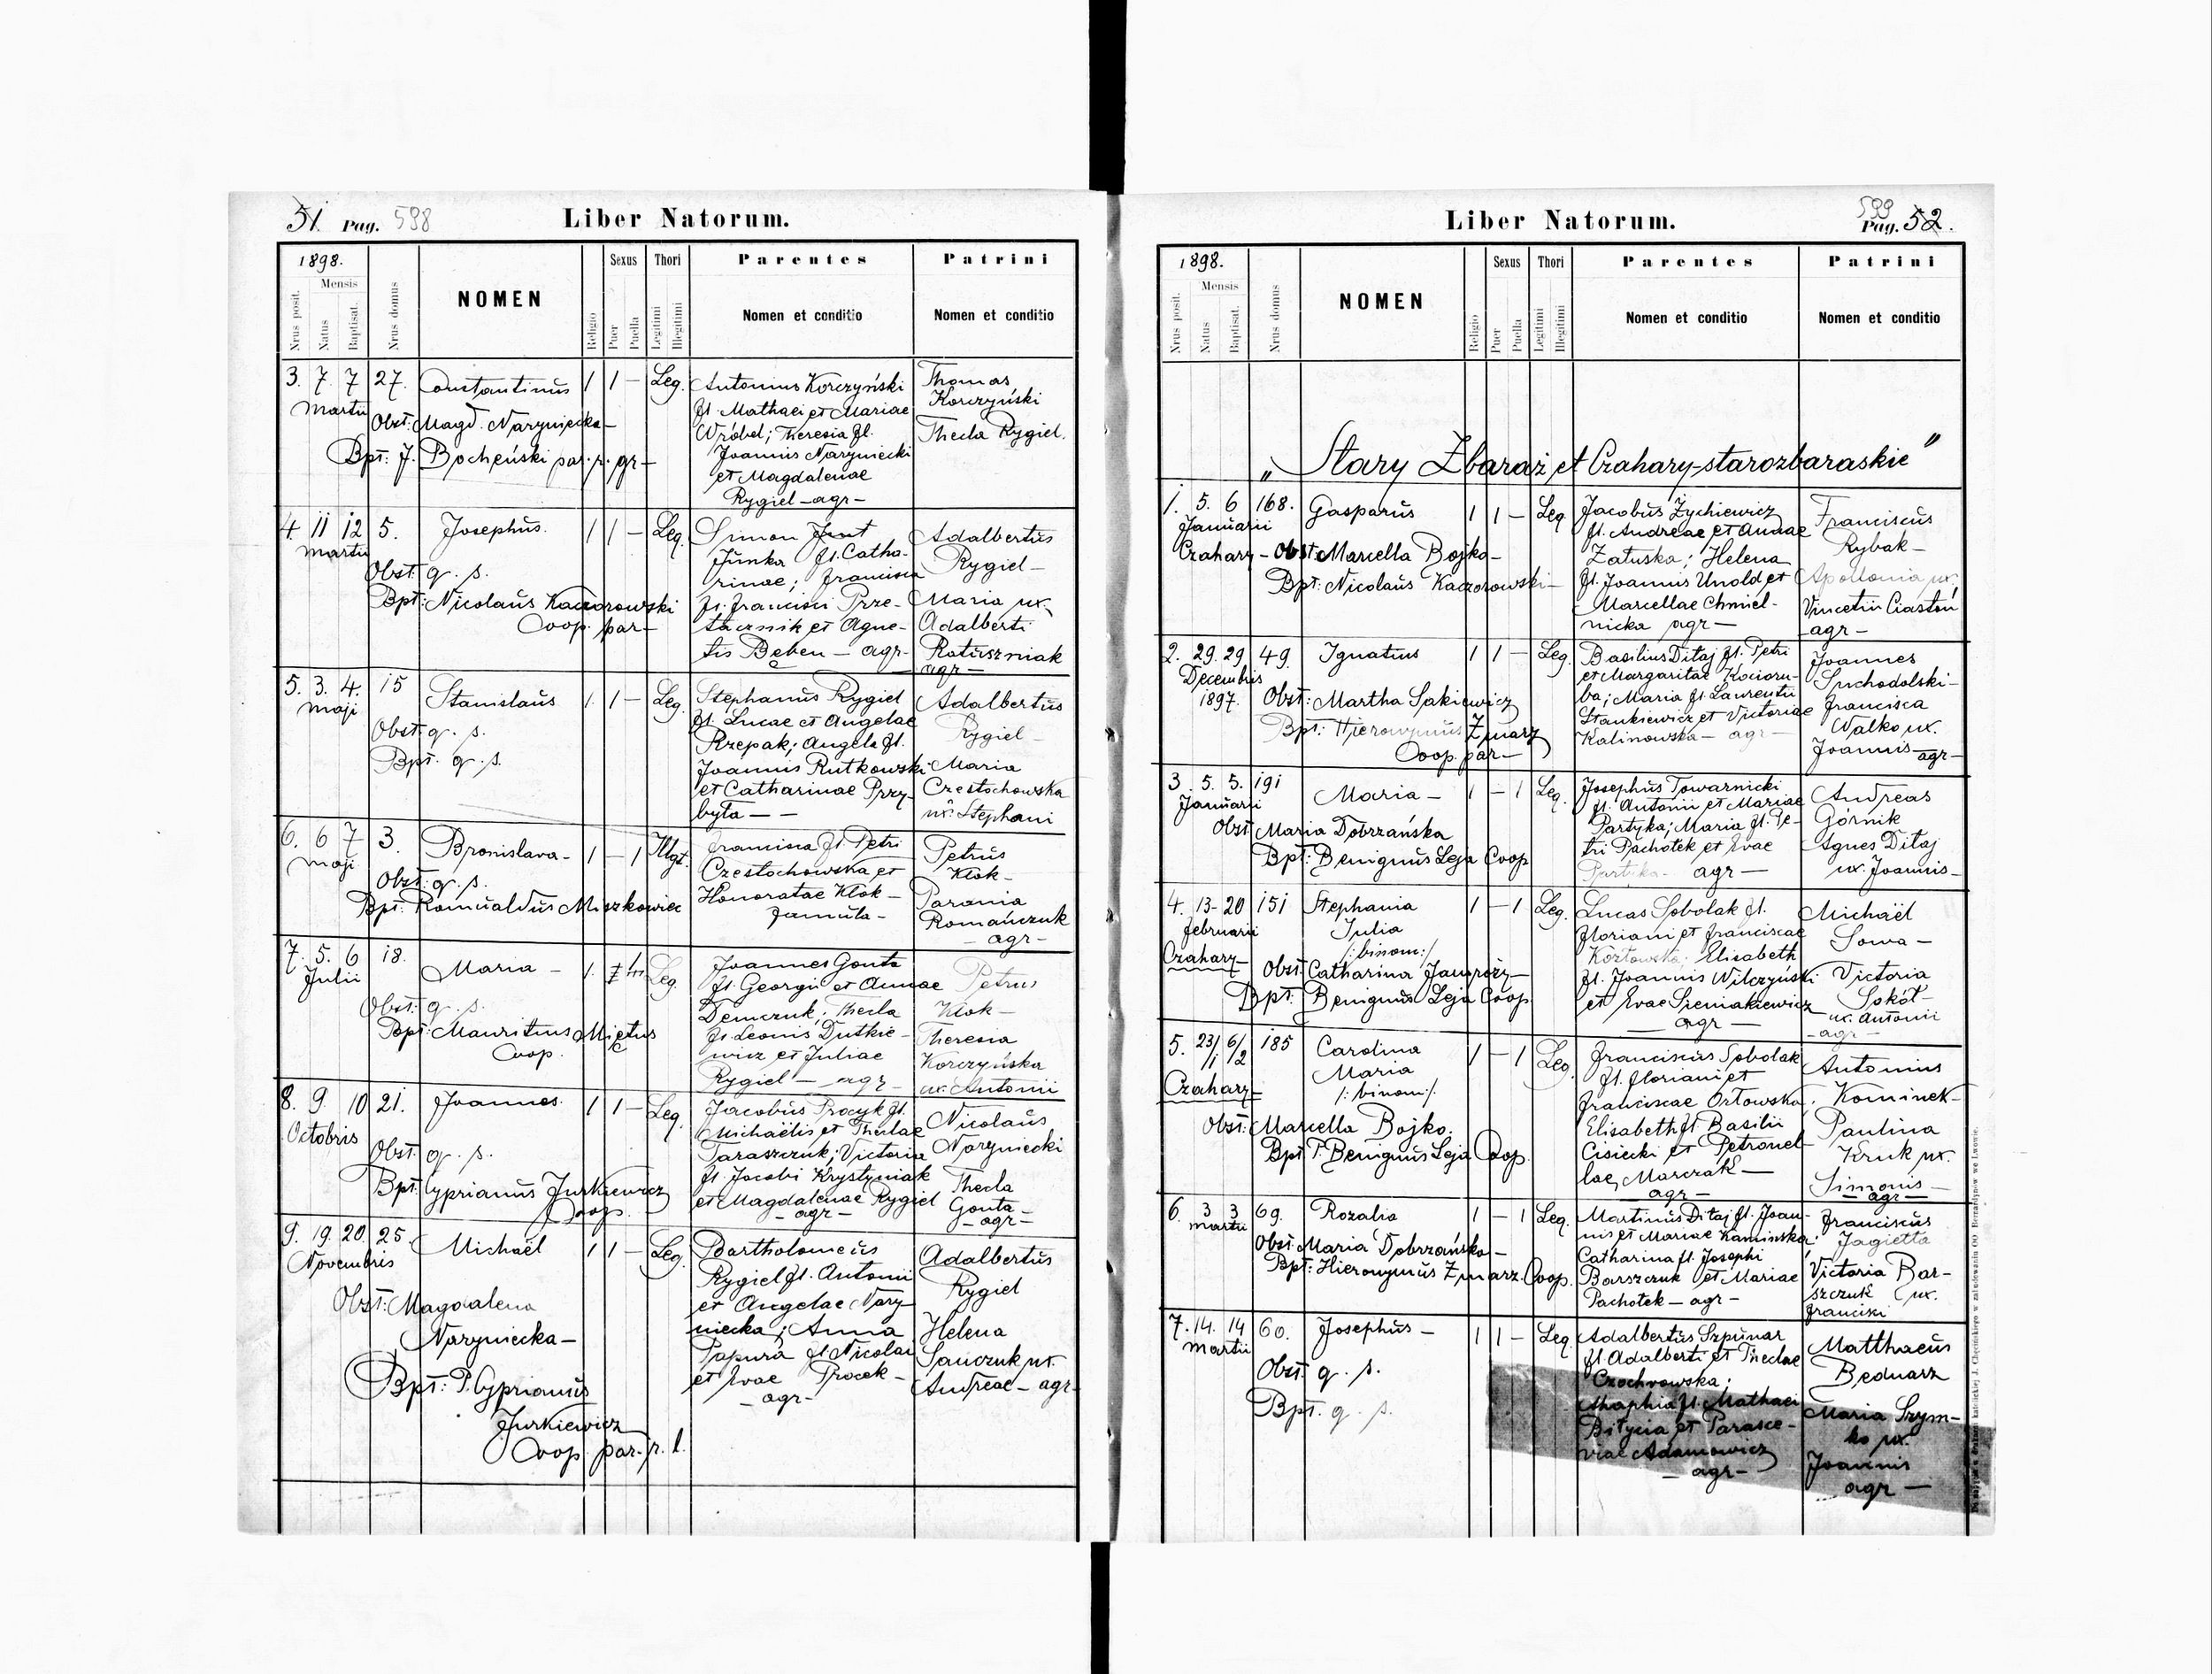 51. Pag. 598
Liber Natorum.
1898.
Nrus posit.
Mensis
Natus
Baptisat.
Nrus domus
NOMEN
Religio
Sexus
Puer
Puella
Thori
Legitimi
Illegitimi
Parentes
Nomen et conditio
Patrini
Nomen et conditio
3. 7. 7 27. Constantinus 1 1 — Leg.
Martii
Obst: Magd. Naryniecka —
Bpt: J. Bocheński par. r. gr —
Antonius Korczyński
fl. Mathaei et Mariae
Wróbel; Theresia fl.
Joannis Naryniecki
et Magdalenae
Rygiel — agr —
Thomas
Korczyński
Thecla Rygiel.
4 11 12 5. Josephus. 1 1 — Leg.
Martii
Obst: q. s.
Bpt: Nicolaus Kaczorowski
Coop. par —
Simon
Junka fl. Catha-
rinae; Francisca
fl. Francisci Prze-
tacznik et Agne-
tis Beben — agr-
Adalbertus
Rygiel —
Maria ux.
Adalberti
Ratuszniak
agr —
5. 3. 4. 15 Stanislaus 1. 1 — Leg.
Maji
Obst: q. s.
Bpt: q. s.
Stephanus Rygiel
fl. Lucae et Angelae
Rzepak; Angela fl.
Joannis Rutkowski
et Catharinae Przy-
byta — —
Adalbertus
Rygiel —
Maria
Czestochowska
ux. Stephani
6. 6 7 3. Bronislava — 1 — 1 Illgt.
Maji
Obst: q. s.
Bpt: Romualdus Miszkowiec
Francisca fl. Petri
Czestochowska et
Honoratae Klok —
famula —
Petrus
Klok —
Parania
Romańczuk
— agr —
7. 5. 6 18. Maria — 1. Leg.
Julii
Obst: q. s.
Bpt: Mauritius Miętus
Coop.
Joannes Gonta
fl. Georgii et Annae
Demczuk; Thecla
fl. Leonis Dutkie-
wicz et Juliae
Rygiel — agr —
Petrus
Klok —
Theresia
Korczyńska
ux. Antonii
8. 9. 10 21. Joannes. 1 1 — Leg.
Octobris
Obst: q. s.
Bpt: Cyprianus Jurkiewicz
Coop.
Jacobus Procyk fl.
Michaëlis et Theclae
Taraszczuk; Victoria
fl. Jacobi Krystyniak
et Magdalenae Rygiel
— agr —
Nicolaus
Naryniecki
Thecla
Gonta —
— agr —
9. 19. 20. 25. Michaël 1 1 — Leg.
Novembris
Obst: Magdalena
Naryniecka —
Bpt: P. Cyprianus
Jurkiewicz
Coop. par. r. l.
Bartholomeus
Rygiel fl. Antonii
et Angelae Nary-
niecka; Anna
Papura fl. Nicolai
et Evae Procek —
— agr —
Adalbertus
Rygiel
Helena
Sauczuk ux.
Andreae — agr-
Liber Natorum.
599
Pag. 52.
1898.
Nrus posit.
Mensis
Natus
Baptisat.
Nrus domus
NOMEN
Religio
Sexus
Puer
Puella
Thori
Legitimi
Illegitimi
Parentes
Nomen et conditio
Patrini
Nomen et conditio
„Stary Zbaraż et Czahary-starozbaraskie"
1. 5. 6 168. Gasparus 1 1 — Leg.
Januarii
Czahary — Obst: Marcella Bojko —
Bpt: Nicolaus Kaczorowski —
Jacobus Żychiewicz
fl. Andreae et Annae
Załuska; Helena
fl. Joannis Unold et
Marcellae Chmiel-
nicka agr —
Franciscus
Rybak —
Apollonia ux.
Vincetii Ciastoń
— agr —
2. 29. 29 49. Ignatius 1 1 — Leg.
Decembris
1897. Obst: Martha Sakiewicz
Bpt: Hieronymus Zmarz
Coop. par —
Basilius Ditaj fl. Petri
et Margaritae Kocioru-
ba; Maria fl. Laurentii
Stankiewicz et Victoriae
Kalinowska — agr —
Joannes
Suchodolski —
Francisca
Walko ux.
Joannis — agr —
3. 5. 5. 191 Maria — 1 — 1 Leg.
Januarii
Obst: Maria Dobrzańska
Bpt: Benignus Leja Coop
Josephus Towarnicki
fl. Antonii et Mariae
Partyka; Maria fl. Pe-
tri Pachotek et Evae
Partyka — agr —
Andreas
Górnik
Agnes Ditaj
ux. Joannis —
4. 13- 20 151 Stephania 1 — 1 Leg.
Februarii
Julia
/: binom :/
Czahary —
Obst: Catharina Jamroży —
Bpt: Benignus Leja Coop
Lucas Sobolak fl.
Floriani et Franciscae
Kozłowska; Elisabeth
fl. Joannis Wilczyński
et Evae Sieniakiewicz
— agr —
Michaël
Sowa —
Victoria
Sokół —
ux. Antonii
— agr —
5. 23/1 6/2 185 Carolina 1 — 1 Leg.
Maria
/: binom :/
Czahary —
Obst: Marcella Bojko.
Bpt: P. Benignus Leja Coop.
Franciscus Sobolak
fl. Floriani et
Franciscae Orłowska.
Elisabeth fl. Basilii
Cisiecki et Petronel-
lae Marczak —
agr —
Antonius
Kominek —
Paulina
Kruk ux.
Simonis —
— agr —
6. 3 3 69. Rozalia 1 — 1 Leg.
Martii
Obst: Maria Dobrzańska —
Bpt: Hieronymus Zmarz. Coop.
Martinus Ditaj fl. Joan-
nis et Mariae Kaminska;
Catharina fl. Josephi
Barszczuk et Mariae
Pachotek — agr —
Franciscus
Jagiełła
Victoria Bar-
szczuk ux.
Francisci
7. 14. 14 60. Josephus — 1 1 — Leg.
Martii
Obst: q. s.
Bpt: q. s.
Adalbertus Szpunar
fl. Adalberti et Theclae
Czochrowska;
fl. Mathaei
et Parasce-
viae Adamowicz
— agr —
Matthaeus
Bednarz
Maria Szym-
ko ux.
Joannis
agr —